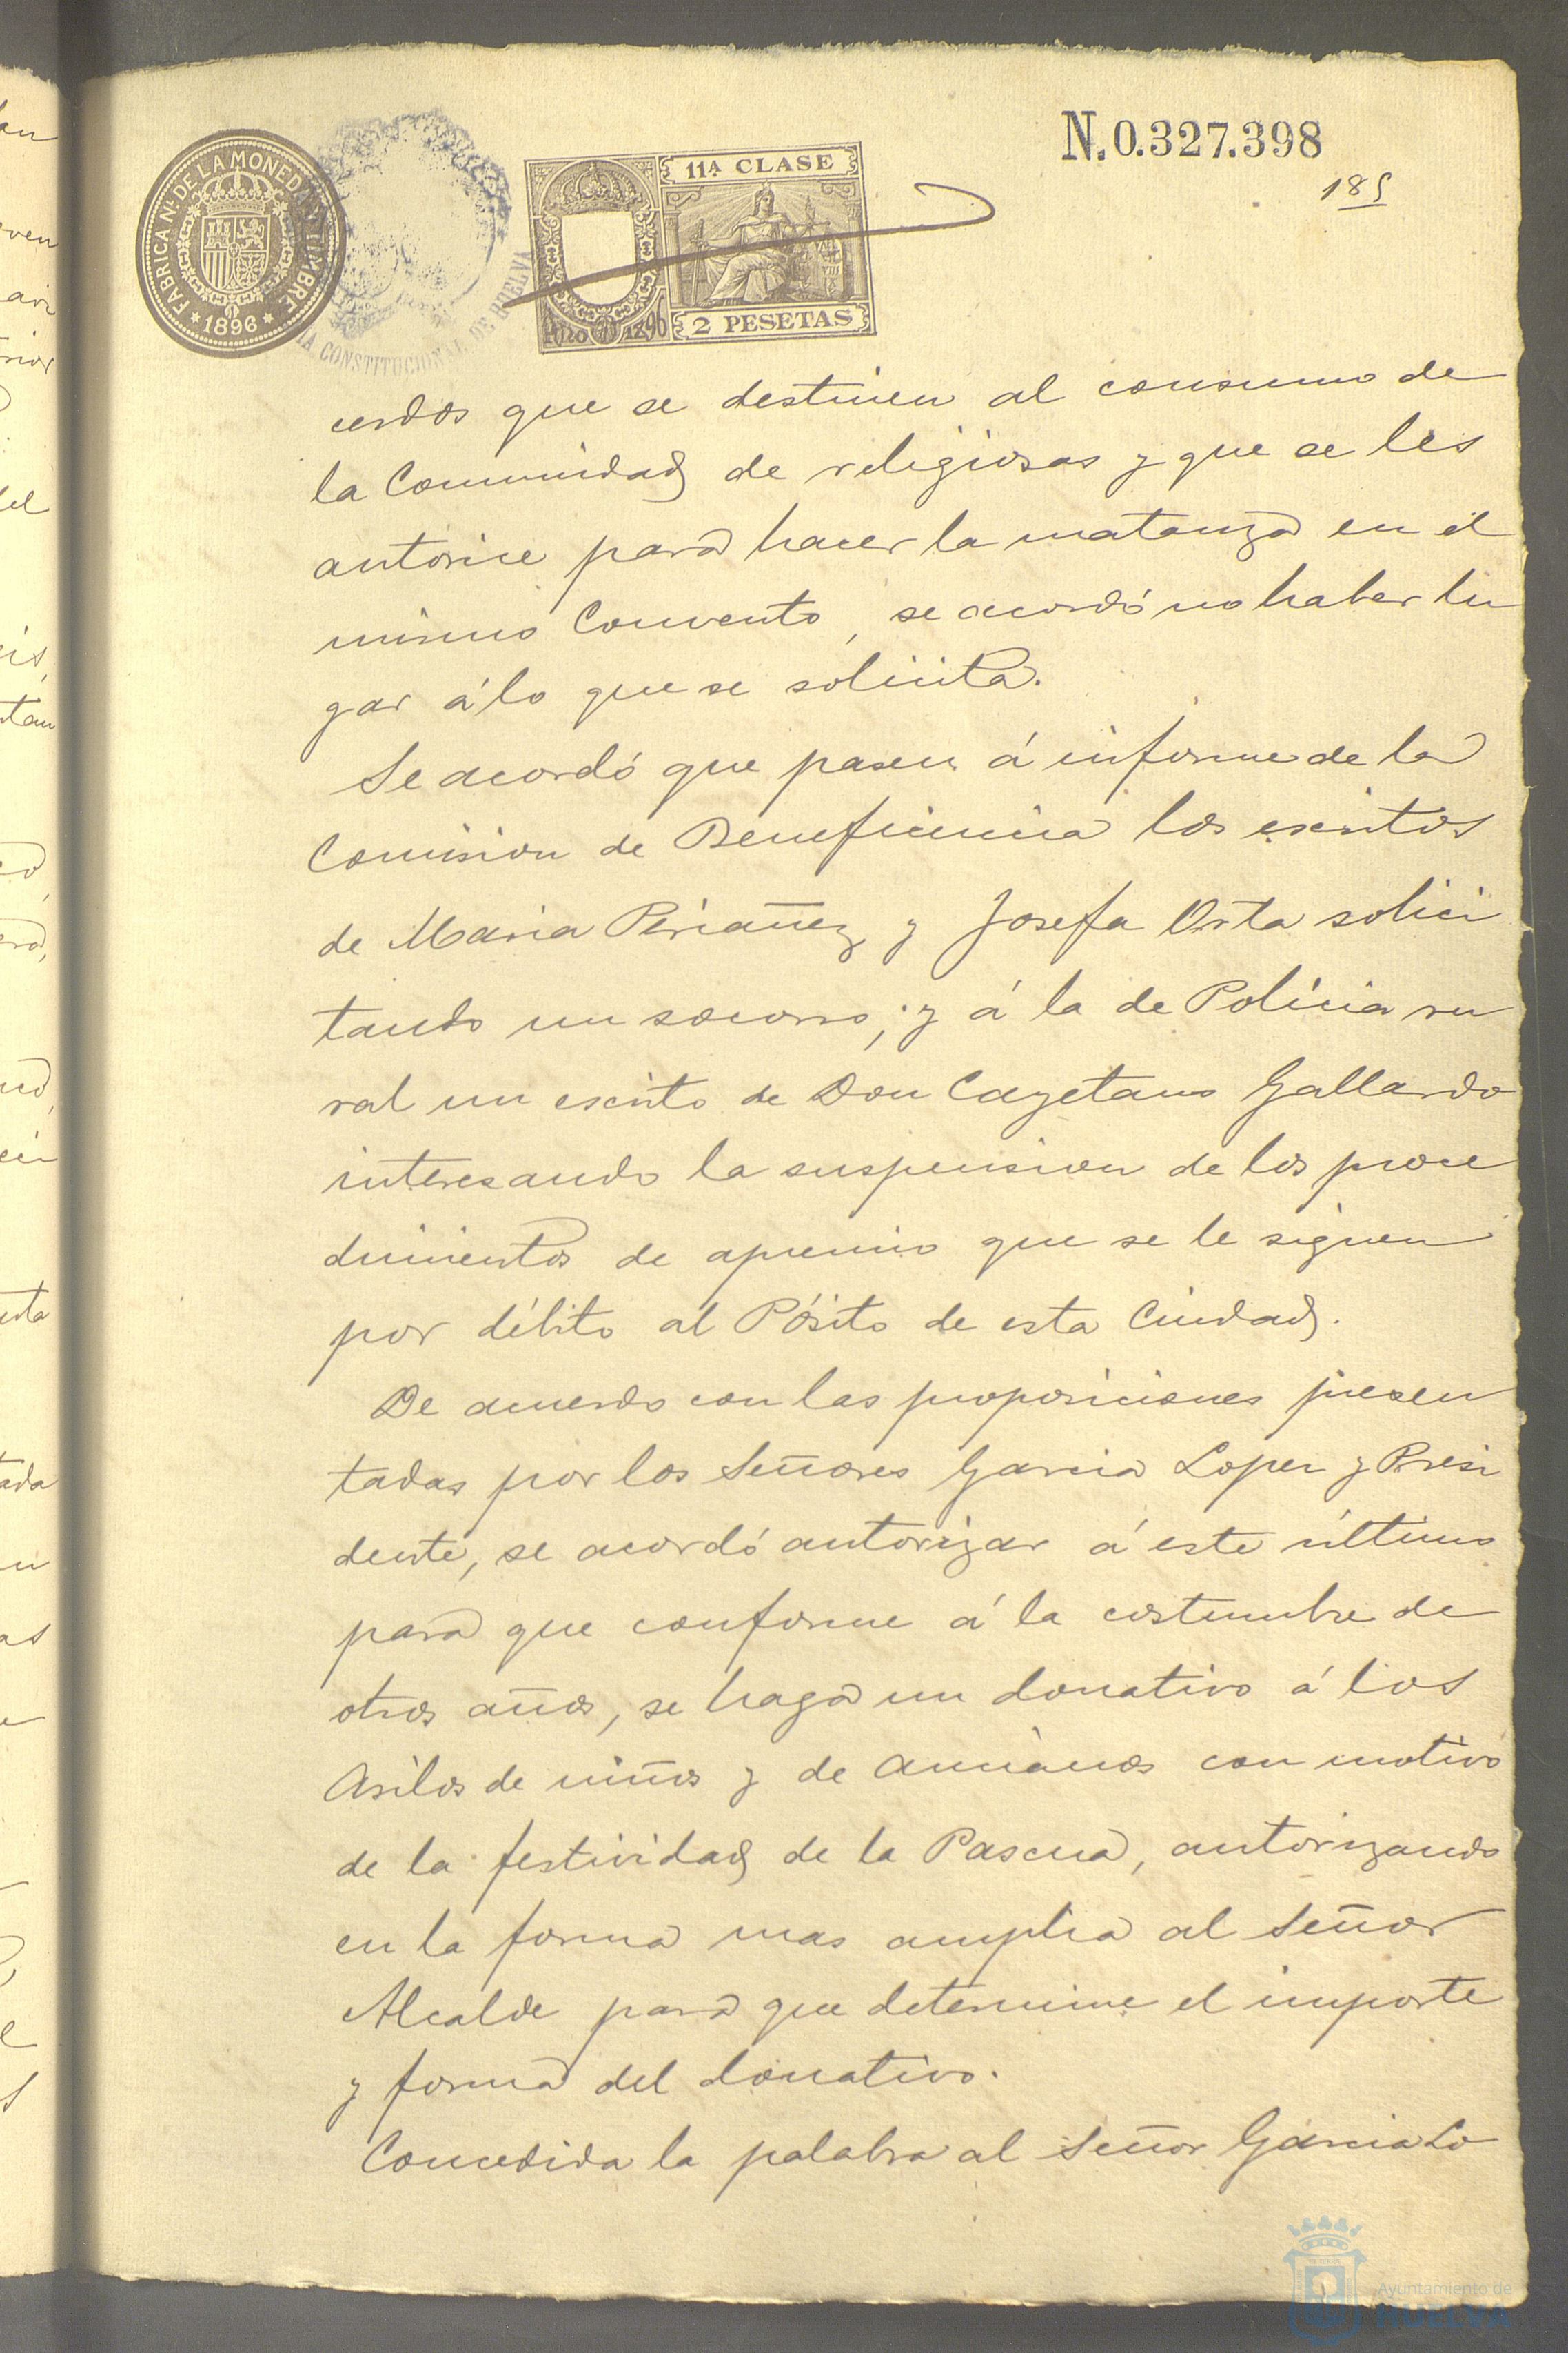 N.0.327.398
185
FABRICA NL DE LA MONEDA Y TIMBRE
* 1896 *
LA CONSTITUCIONAL DE HUELVA
11ª CLASE
AÑO 1896
2 PESETAS
cerdos que se destinen al consumo de
la Comunidad de religiosas y que se les
autorice para hacer la matanza en el
mismo Convento, se acordó no haber lu
gar á lo que se solicita.
Se acordó que pasen á informe de la
Comision de Beneficencia los escritos
de Maria Periañez y Josefa Orta solici
tando un socorro; y á la de Policia ru
ral un escrito de Don Cayetano Gallardo
interesando la suspension de los proce
dimientos de apremio que se le siguen
por débito al Pósito de esta Ciudad.
De acuerdo con las proposiciones presen
tadas por los Señores Garcia Lopez y Presi
dente, se acordó autorizar á este último
para que conforme á la costumbre de
otros años, se haga un donativo á los
Asilos de niños y de Ancianos con motivo
de la festividad de la Pascua, autorizando
en la forma mas amplia al Señor
Alcalde para que determine el importe
y forma del donativo.
Concedida la palabra al Señor Garcia Lo
Ayuntamiento de
HUELVA